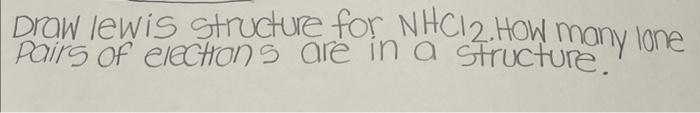 Draw lewis structure for NHCl2. How many lone
pairs of electrons are in a structure.